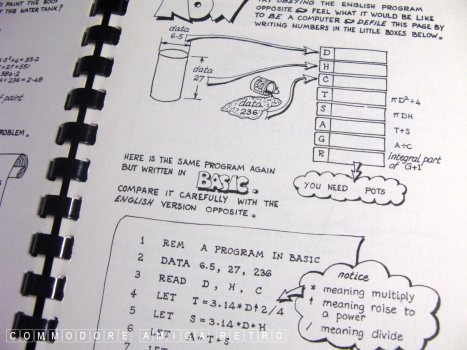 PAINT THE ROOF
WATER TANK?
NOW.
OBEYING THE ENGLISH PROGRAM
OPPOSITE & FEEL WHAT IT WOULD BE LIKE
TO BE A COMPUTER & DEFILE THIS PAGE BY
WRITING NUMBERS IN THE LITTLE BOXES BELOW.
data
6.5
data
27
data
236
D
H
C
T
S
A
G
R
πD²÷4
πDH
T+S
A÷C
integral part
of "G+1"
YOU NEED POTS
paint
PROBLEM.
HERE IS THE SAME PROGRAM AGAIN
BUT WRITTEN IN BASIC.
COMPARE IT CAREFULLY WITH THE
ENGLISH VERSION OPPOSITE.
1 REM A PROGRAM IN BASIC
2 DATA 6.5, 27, 236
3 READ D, H, C
4 LET T=3.14*D↑2/4
5 LET S=3.14*D*H
6
7
notice
* meaning multiply
↑ meaning raise to
a power
/ meaning divide
COMMODORE AMIGA RETRO